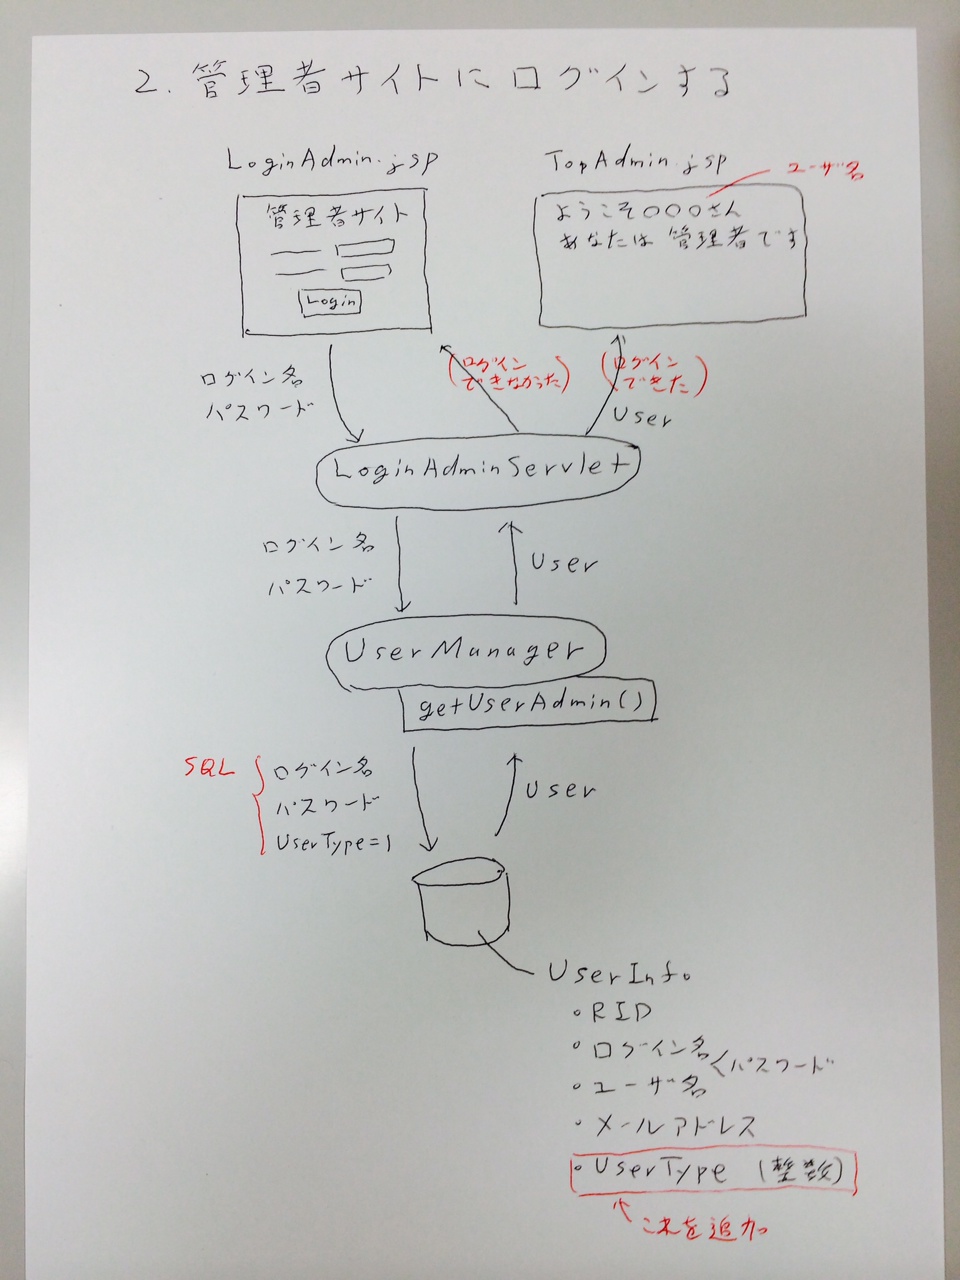 2. 管理者サイトにログインする
LoginAdmin.jsp
TopAdmin.jsp
ユーザ名
管理者サイト
Login
ようこそ〇〇〇さん
あなたは 管理者です
ログイン名
パスワード
(ログイン
できなかった)
(ログイン
できた)
User
LoginAdminServlet
ログイン名
パスワード
User
UserManager
getUserAdmin()
SQL
ログイン名
パスワード
UserType=1
User
UserInfo
・RID
・ログイン名
パスワード
・ユーザ名
・メールアドレス
・UserType (整数)
これを追加